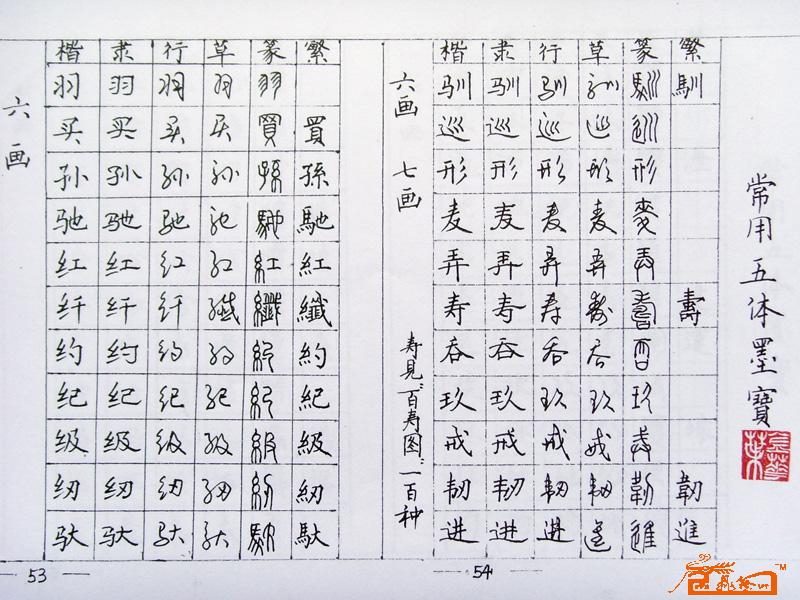 楷 隶 行 草 篆 繁
羽 羽 羽 羽 羽
买 买 买 买 買 買
孙 孙 孙 孙 孫 孫
驰 驰 驰 驰 馳 馳
红 红 红 红 紅 紅
纤 纤 纤 纖 纖 纖
约 约 约 约 約 約
纪 纪 纪 纪 紀 紀
级 级 级 级 級 級
纫 纫 纫 纫 紉 紉
驮 驮 驮 驮 馱 馱
六画
53
楷 隶 行 草 篆 繁
驯 驯 驯 训 馴 馴
巡 巡 巡 巡 巡
形 形 形 形 形
麦 麦 麦 麦 麥
弄 弄 弄 弄 弄
寿 寿 寿 寿 壽 壽
吞 吞 吞 吞 吞
玖 玖 玖 玖 玖
戒 戒 戒 戒 戒
韧 韧 韧 韧 韌 韌
进 进 进 進 進 進
六画 七画
寿见:百寿图:一百种
54
常用五体墨寶